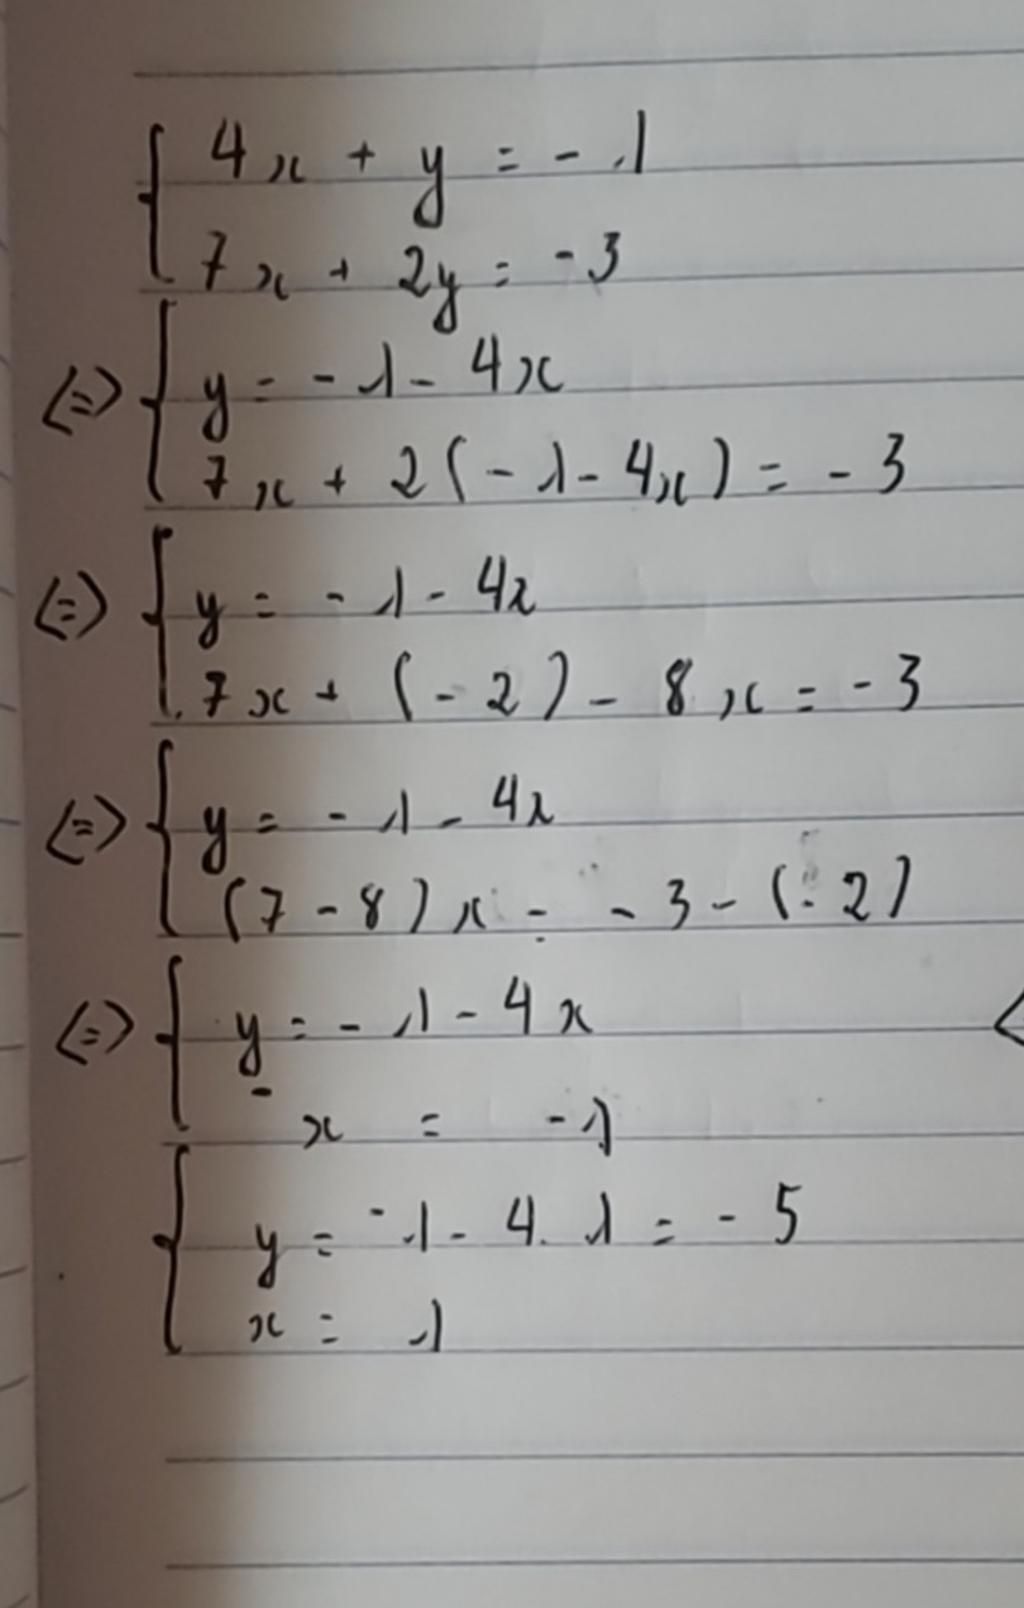 4x + y = -1
7x + 2y = -3
<=> y = -1 - 4x
7x + 2(-1 - 4x) = -3
<=> y = -1 - 4x
7x + (-2) - 8x = -3
<=> y = -1 - 4x
(7 - 8)x = -3 - (-2)
<=> y = -1 - 4x
-x = -1
y = -1 - 4.1 = -5
x = 1